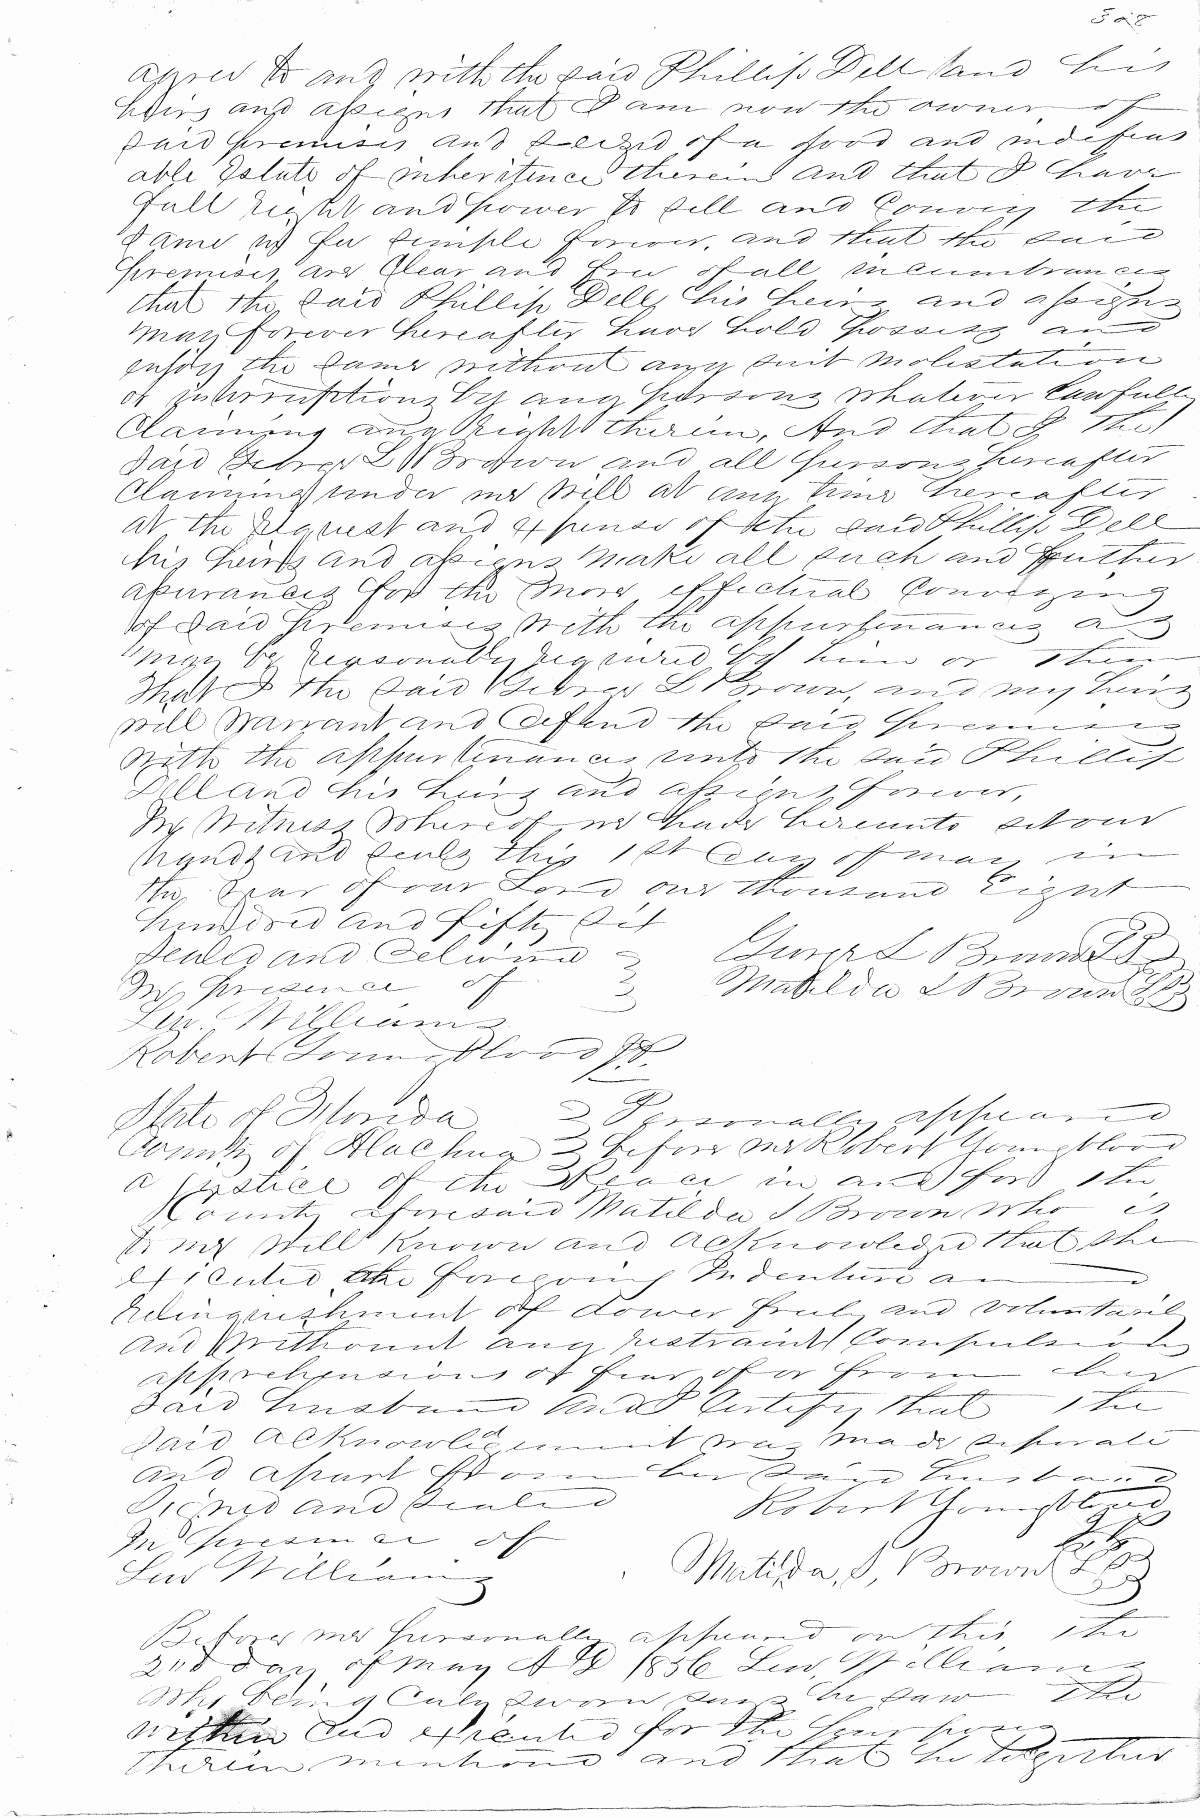 528
agree to and with the said Phillip Dell and his
heirs and assigns that I am now the owner of
said premises and seized of a good and indefeas
able Estate of inheritence therein and that I have
full right and power to sell and Convey the
same in fee simple forever, and that the said
premises are Clear and free of all incumbrances
that the said Phillip Dell his heirs and assigns
may forever hereafter have hold possess and
enjoy the same without any suit molestation
or interruptions by any persons whatever lawfully
Claiming any right therein, And that I the
said George L Brown and all persons hereafter
Claiming under me will at any time hereafter
at the request and expense of the said Phillip Dell
his heirs and assigns make all such and further
assurances for the more effectual Conveying
of said premises with the appurtenances as
may be reasonably required by him or them
that I the said George L Brown, and my heirs
will warrant and defend the said premises
with the appurtenances unto the said Phillip
Dell and his heirs and assigns forever,
In Witness Whereof we have hereunto set our
hands and seals this 1st day of May in
the year of our Lord one thousand Eight
hundred and fifty six
Sealed and delivered George L Brown LS
In presence of Matilda S Brown LS
Lew. Williams
Robert Youngblood J.P.
State of Florida Personally appeared
County of Alachua before me Robert Youngblood
a justice of the Peace in and for the
County aforesaid Matilda S Brown who is
to me well known and acknowledged that she
executed the foregoing Indenture and
relinquishment of dower freely and voluntarily
and without any restraint Compulsion
apprehensions or fear of or from her
said husband And I Certify that the
said acknowledgement was made seperate
and apart from her said husband
Signed and sealed Robert Youngblood
In presence of J.P.
Lew Williams Matilda, S, Brown LS
Before me personally appeared on this the
2nd day of May AD 1856 Lew, Williams
who being duly sworn says he saw the
within deed executed for the purposes
therein mentioned and that he together